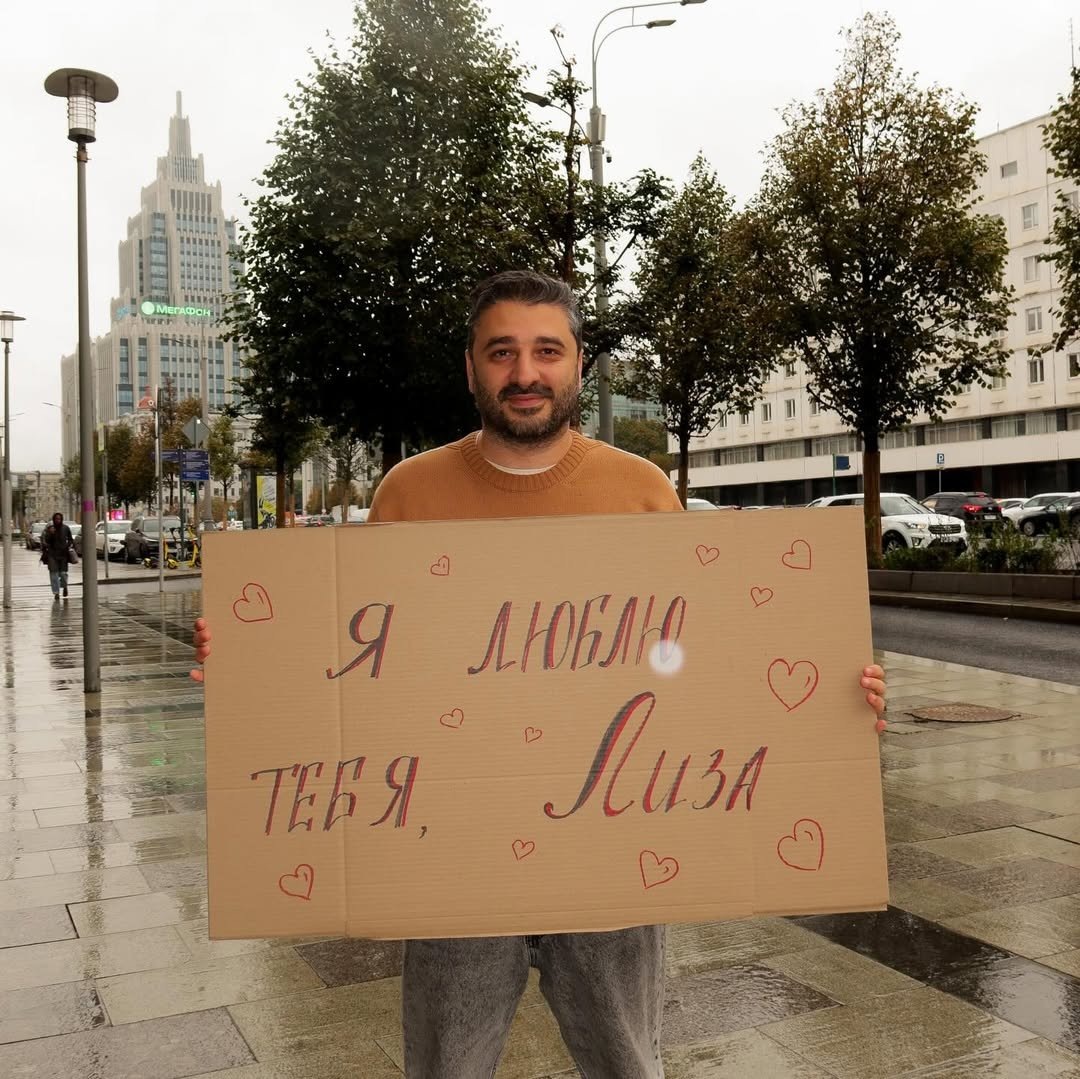 МЕГАФОН
Я ЛЮБЛЮ
ТЕБЯ, ЛИЗА